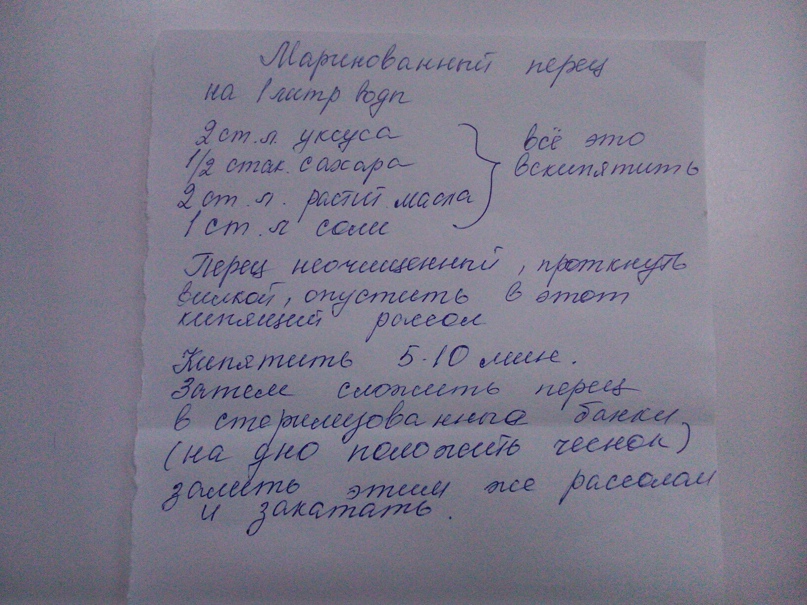 Маринованный перец
на 1 литр воды
2 ст. л. уксуса
1/2 стак. сахара
2 ст. л. растит масла
1 ст. л соли
всё это
вскипятить
Перец неочищенный, проткнуть
вилкой, опустить в этот
кипящий рассол
Кипятить 5-10 мин.
Затем сложить перец
в стерилизованные банки
(на дно положить чеснок)
залить этим же рассолом
и закатать.